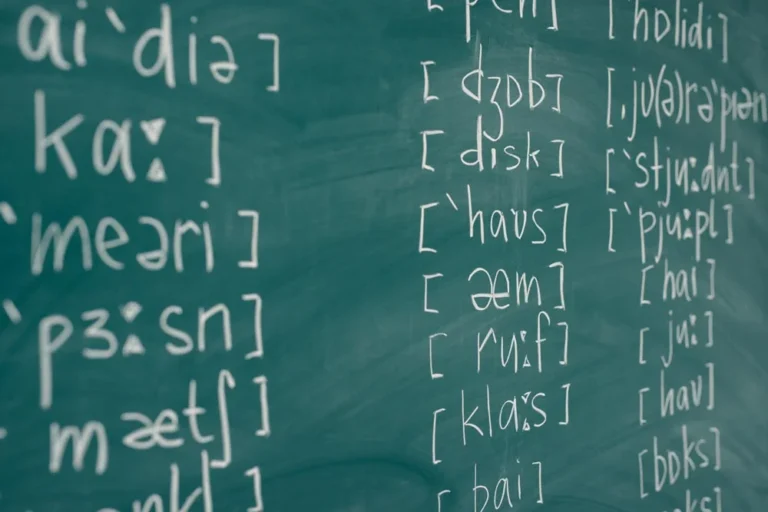 ai`diə]
kaː]
`meəri]
`pɜːsn]
mætʃ]
[dʒɒb]
[disk]
[`haʊs]
[æm]
[ruːf]
[klaːs]
[bai]
[`hɒlidi]
[ˌjʊ(ə)rə`pɪən
[`stjuːdnt]
[`pjuːpl]
[hai]
[juː]
[haʊ]
[bɒks]